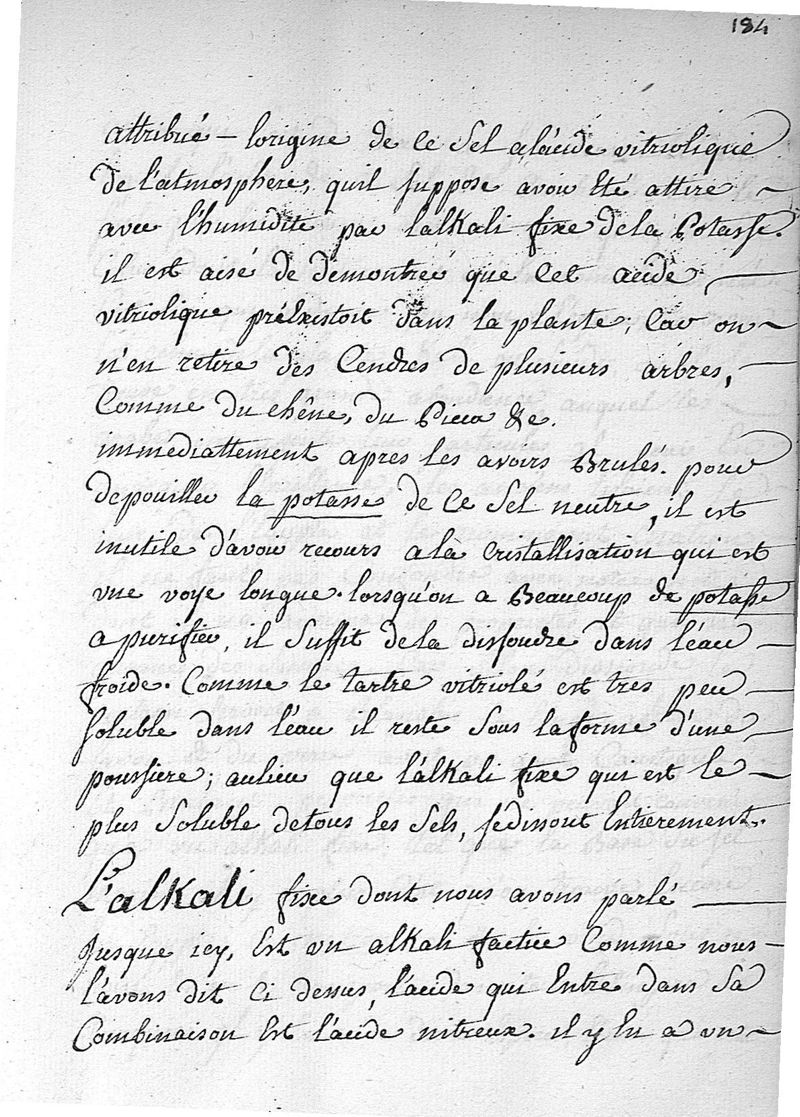 184
attribué — lorigine de ce Sel alácide vitriolique
de l'atmosphere, quil suppose avoir Eté attire —
avec l'humidité par lalkali fixe dela Potasse.
il est aisé de démontrer que Cet acide —
vitriolique préExistoit dans la plante, Car on —
n'en retire des Cendres de plusieurs arbres, —
Comme du chêne, du &c.
immediattement apres les avoirs Brulés. pour
depouiller la potasse de Ce Sel neutre, il est
inutile d'avoir recours a la Cristallisation qui est
une voye longue. lorsqu'on a Beaucoup de potasse
a purifier, il Suffit dela dissoudre dans leau —
froide. Comme le tartre vitriolé est tres peu —
soluble dans léau il reste Sous laforme d'une —
poussiere; aulieu que lálkali fixe qui est le —
plus Soluble detous les Sels, sedissout Entierement.
L'alkali fixe dont nous avons parlé —
Jusque icy, Est un alkali factice Comme nous —
l'avons dit Ci dessus, l'ácide qui Entre dans Sa
Combinaison Est l'ácide nitreux. il y En a un —